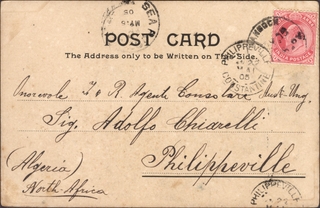 SEA P
POST CARD
The Address only to be Written on This Side.
PHILIPPEVILLE
CONSTANTINE
05
Onorevole I. & R. Agente Consolare Aust. Ung.
Sig. Adolfo Chiarelli
Philippeville
(Algeria)
North Africa
PHILIPPEVILLE